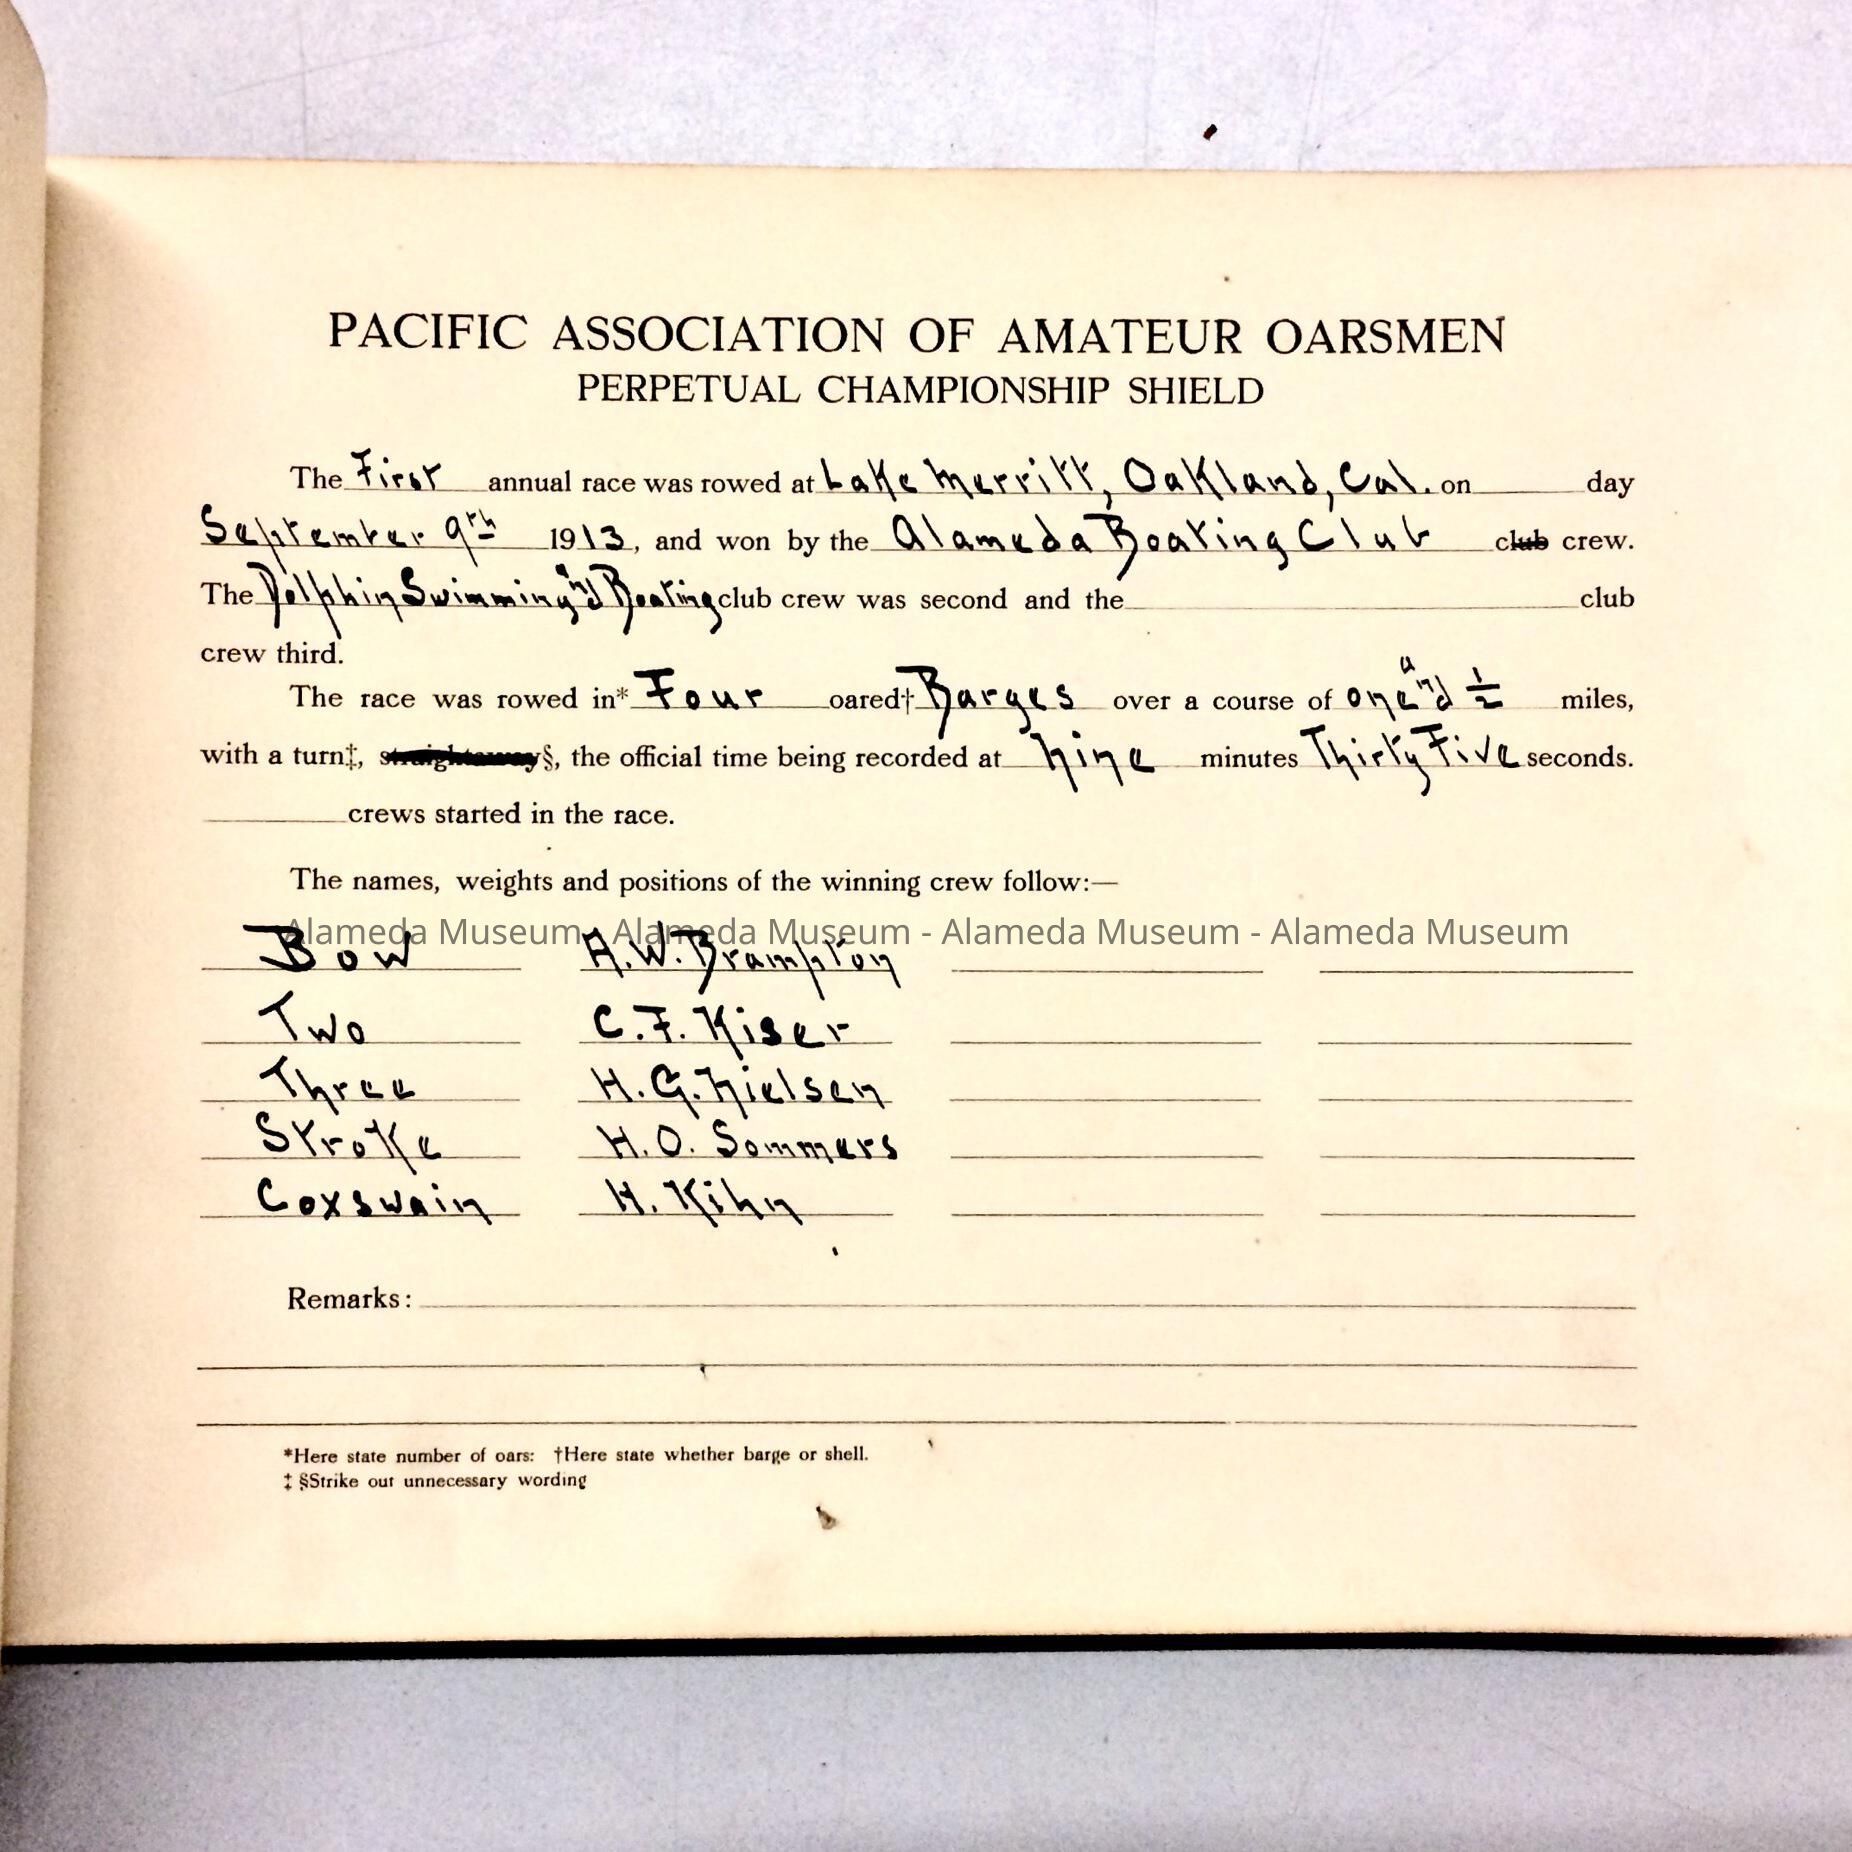 PACIFIC ASSOCIATION OF AMATEUR OARSMEN
PERPETUAL CHAMPIONSHIP SHIELD
The First annual race was rowed at Lake Merritt, Oakland, Cal. on day
September 9th 1913, and won by the Alameda Boating Club club crew.
The Dolphin Swimming and Boating club crew was second and the club
crew third.
The race was rowed in* Four oared† Barges over a course of one and ½ miles,
with a turn‡, straightaway§, the official time being recorded at nine minutes Thirty Five seconds.
crews started in the race.
The names, weights and positions of the winning crew follow:—
Alameda Museum - Alameda Museum - Alameda Museum - Alameda Museum
Bow A.W. Brampton
Two C.F. Kiser
Three H.G. Nielsen
Stroke H.O. Sommers
Coxswain H. Kihn
Remarks:
*Here state number of oars: †Here state whether barge or shell.
‡ §Strike out unnecessary wording